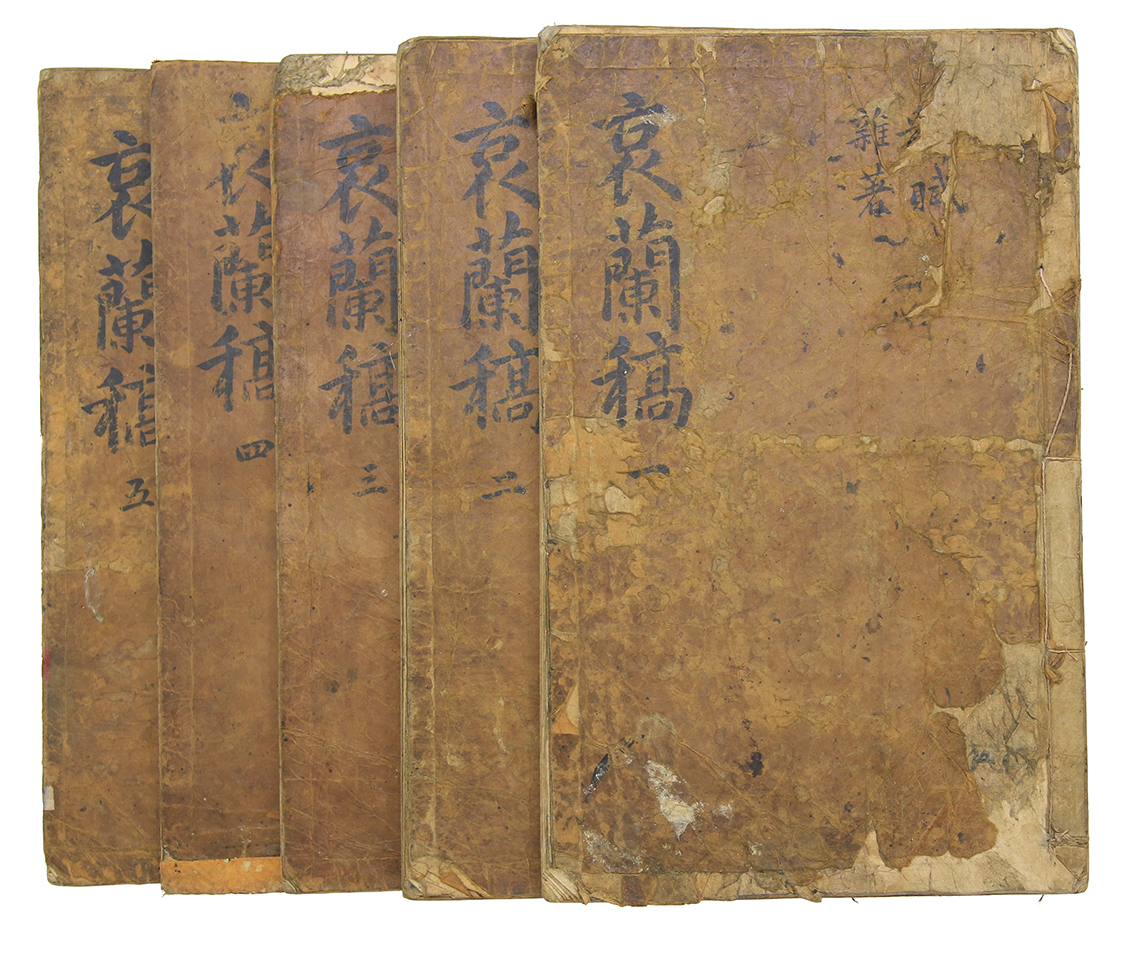 賦
雜著
哀蘭稿 一
哀蘭稿 二
哀蘭稿 三
蘭稿 四
哀蘭稿 五